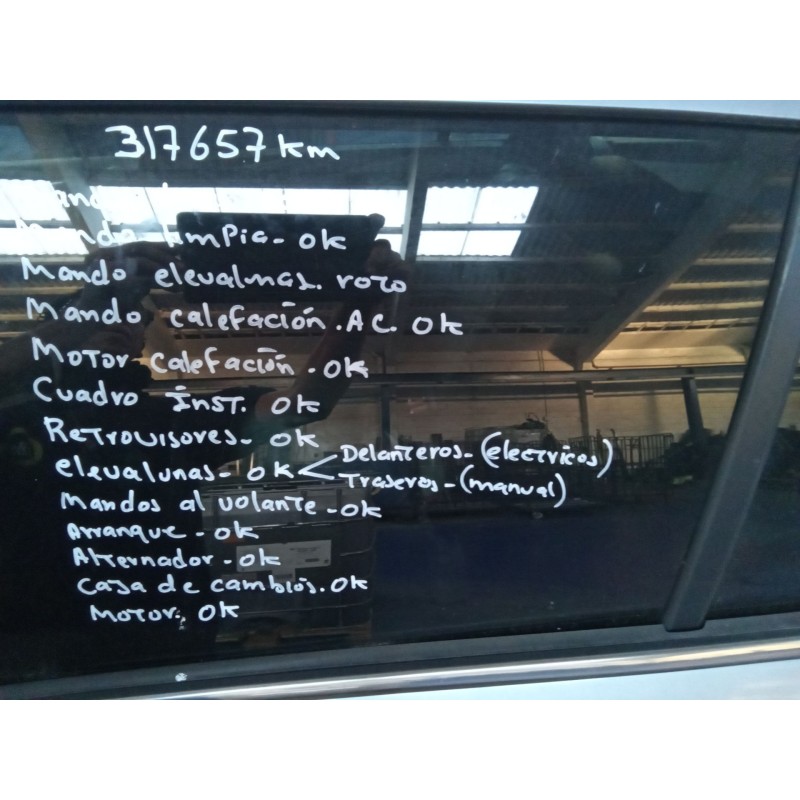 317657 km
limpia - ok
Mando elevalunas. roto
Mando calefación. AC. ok
Motor calefación - ok
Cuadro Inst. ok
Retrovisores - ok
elevalunas - ok < Delanteros - (electricos)
Traseros - (manual)
Mandos al volante - ok
Arranque - ok
Alternador - ok
Caja de cambios. ok
Motor. ok